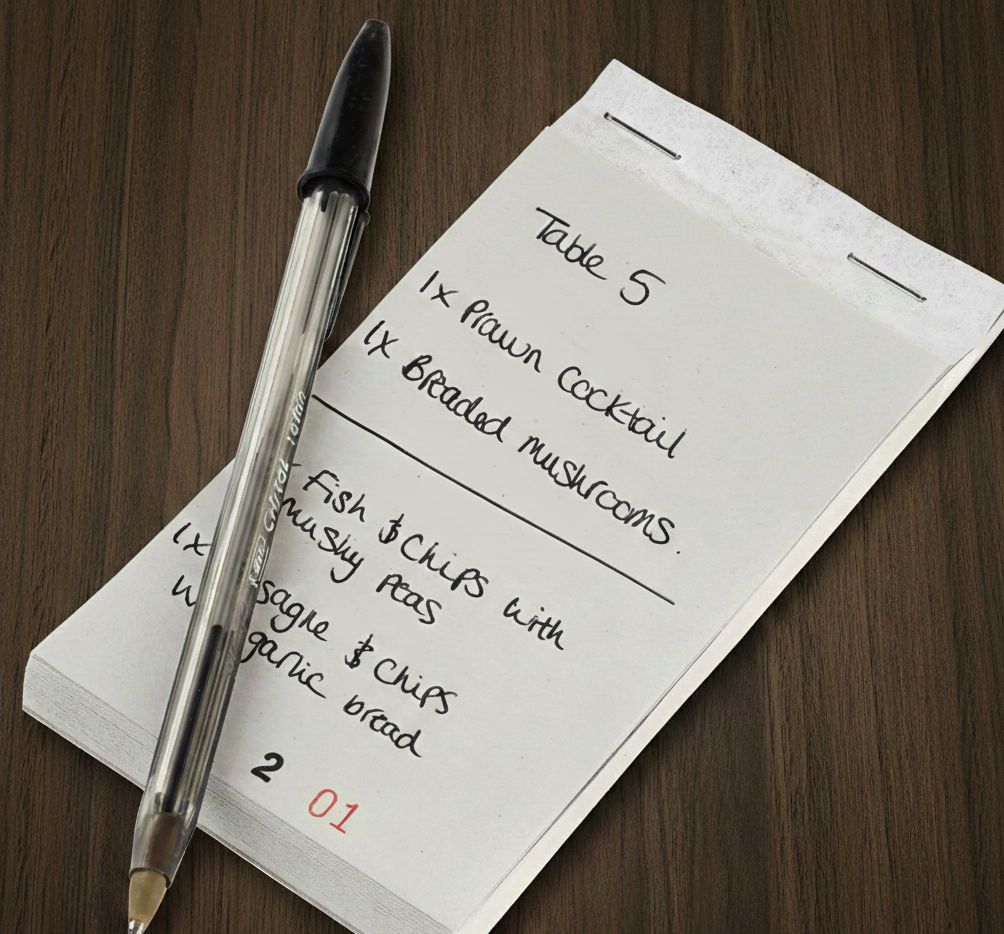 Table 5
1x Prawn Cocktail
1x Breaded mushrooms.
Fish & Chips with
mushy peas
1x sagne & Chips
garlic bread
2
01